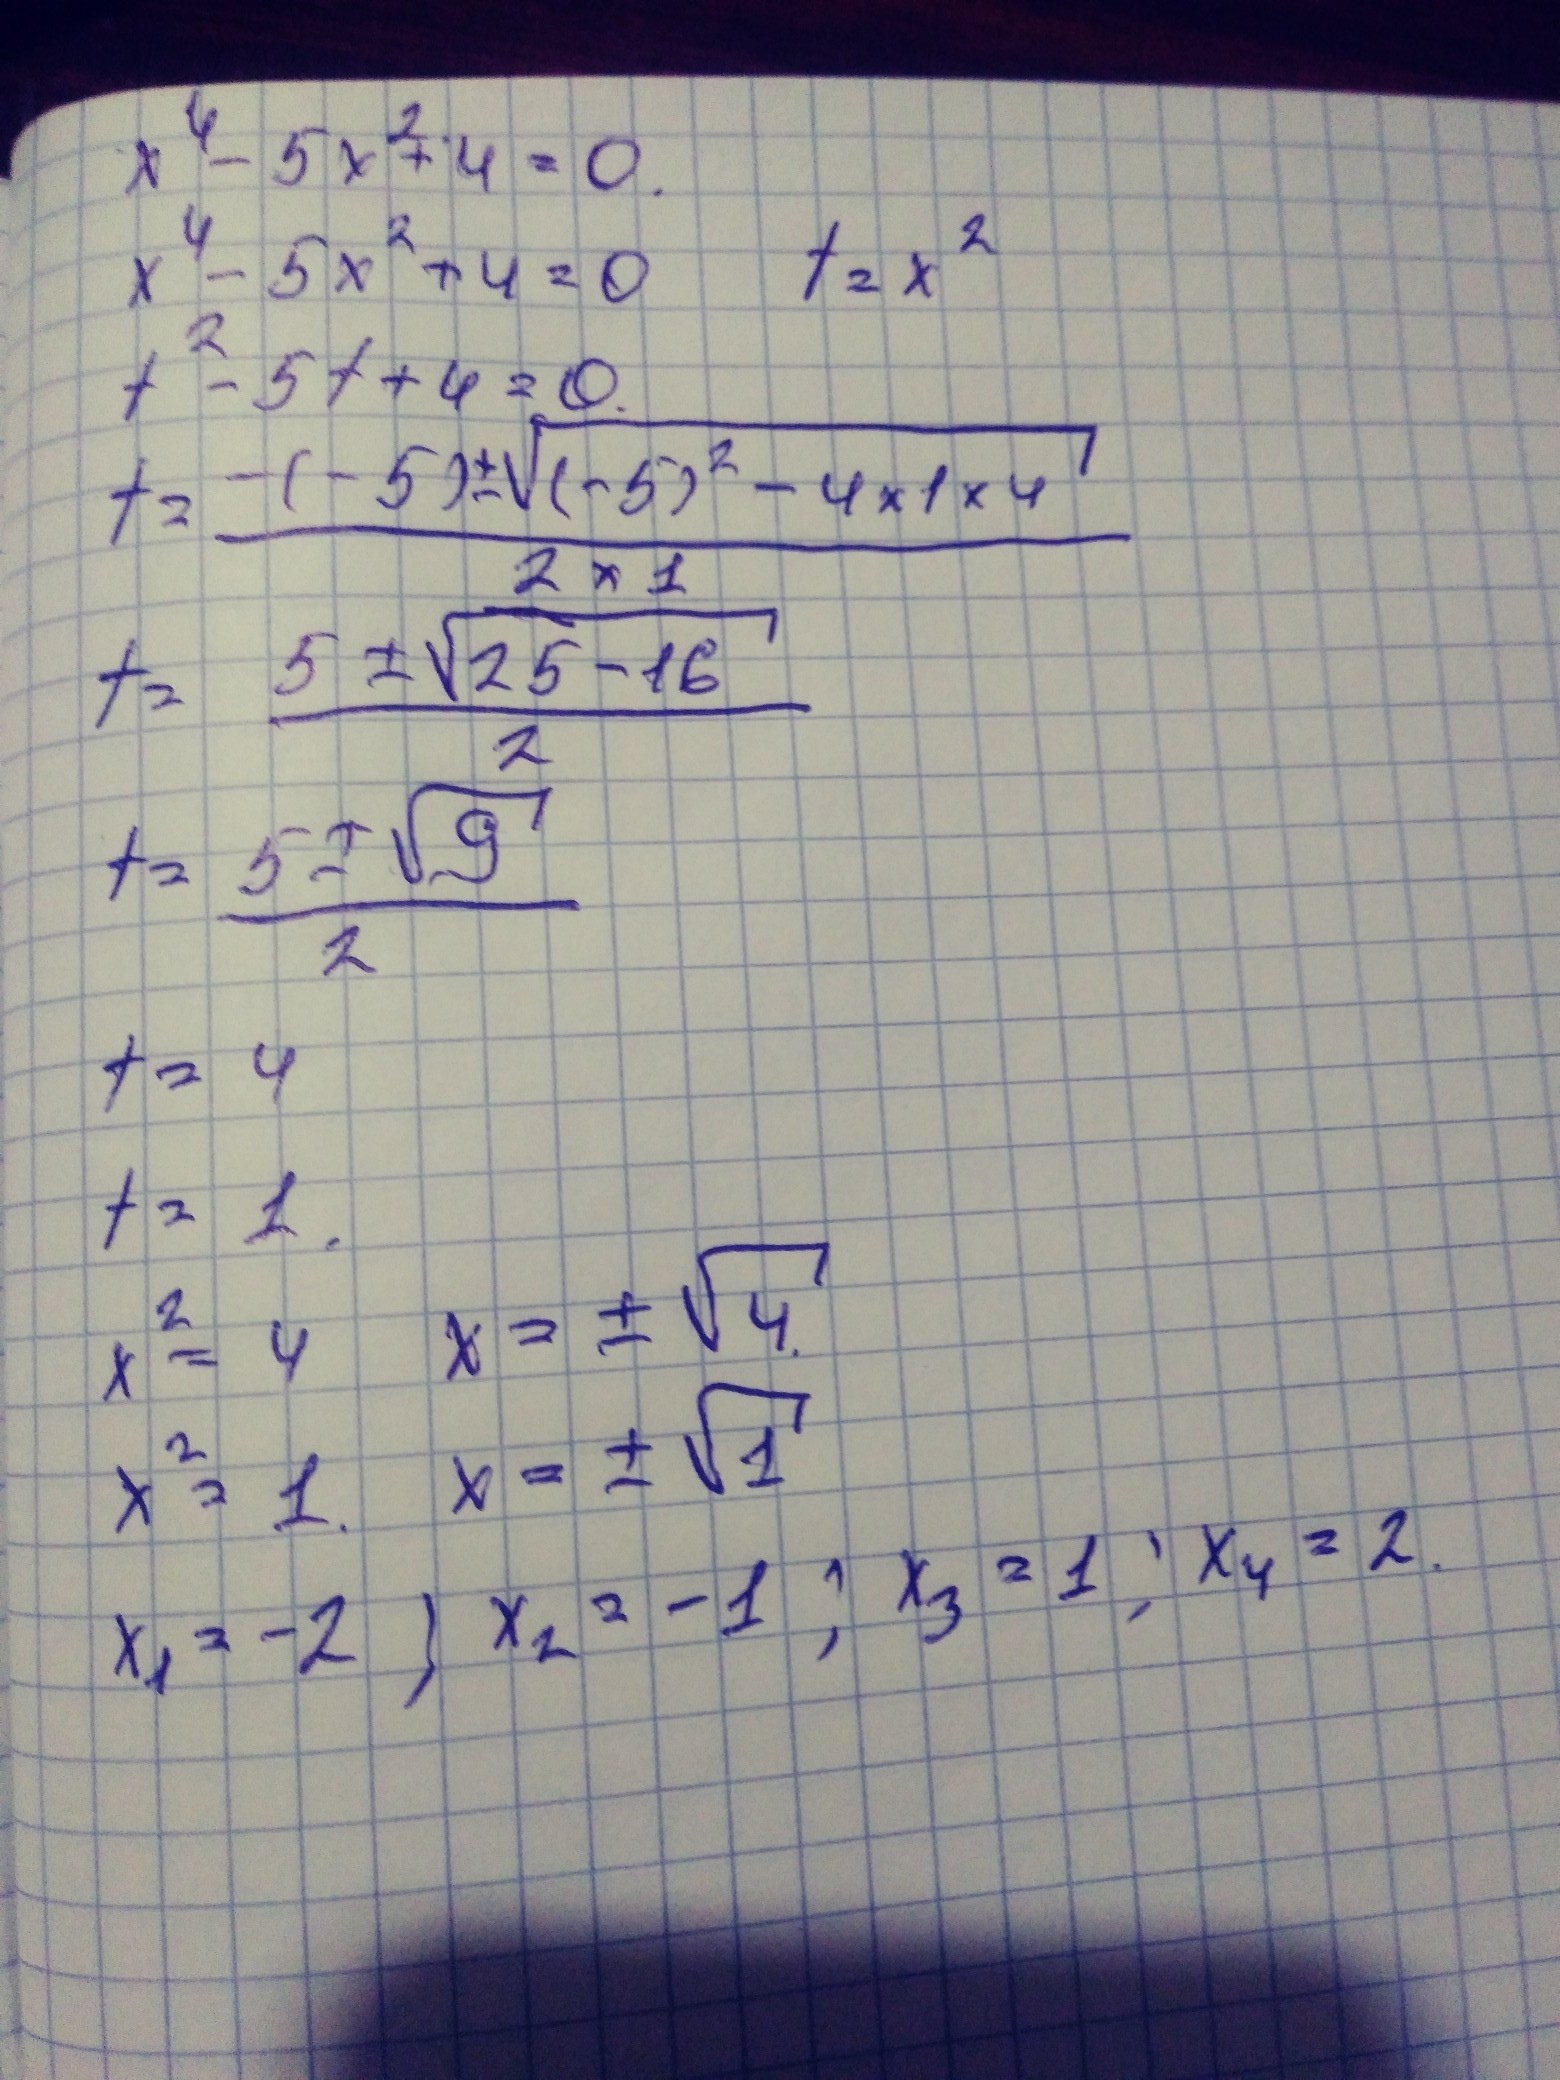 x⁴ - 5x² + 4 = 0.
x⁴ - 5x² + 4 = 0    t = x²
t² - 5t + 4 = 0.
t = (-(-5) ± √((-5)² - 4 × 1 × 4)) / (2 × 1)
t = (5 ± √(25 - 16)) / 2
t = (5 ± √9) / 2
t = 4
t = 1.
x² = 4    x = ± √4.
x² = 1.    x = ± √1
x₁ = -2 ; x₂ = -1 ; x₃ = 1 ; x₄ = 2.